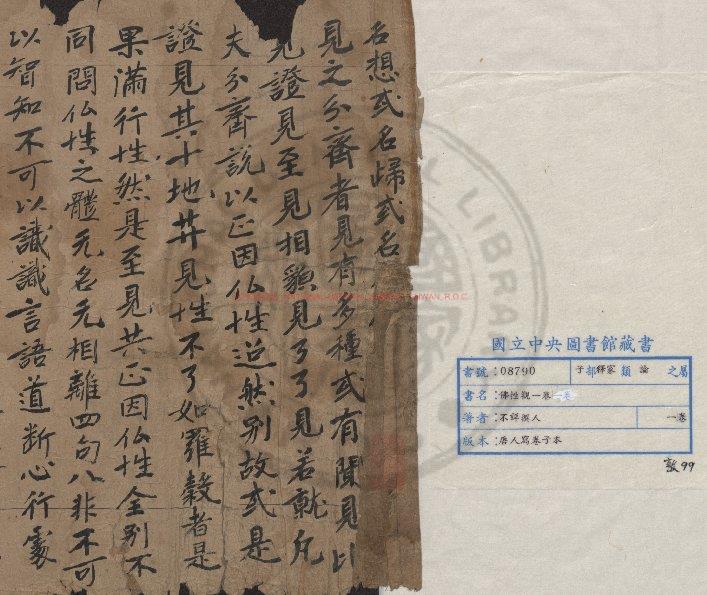 名想或名歸或名
見之分齊者見有多種或有聞見以
見證見至見相貌見了了見若就凡
夫分齊說以正因仏性逈然別故或是
證見其十地菩見性不了如羅縠者是
果滿行性然是至見共正因仏性全別不
同問仏性之體无名无相離四句八非不可
以智知不可以識識言語道断心行處
國立中央圖書館藏書
書號:08790 子部釋家類 論 之屬
書名:佛性觀一卷
著者:不詳撰人 一卷
版本:唐人寫卷子本
敦99